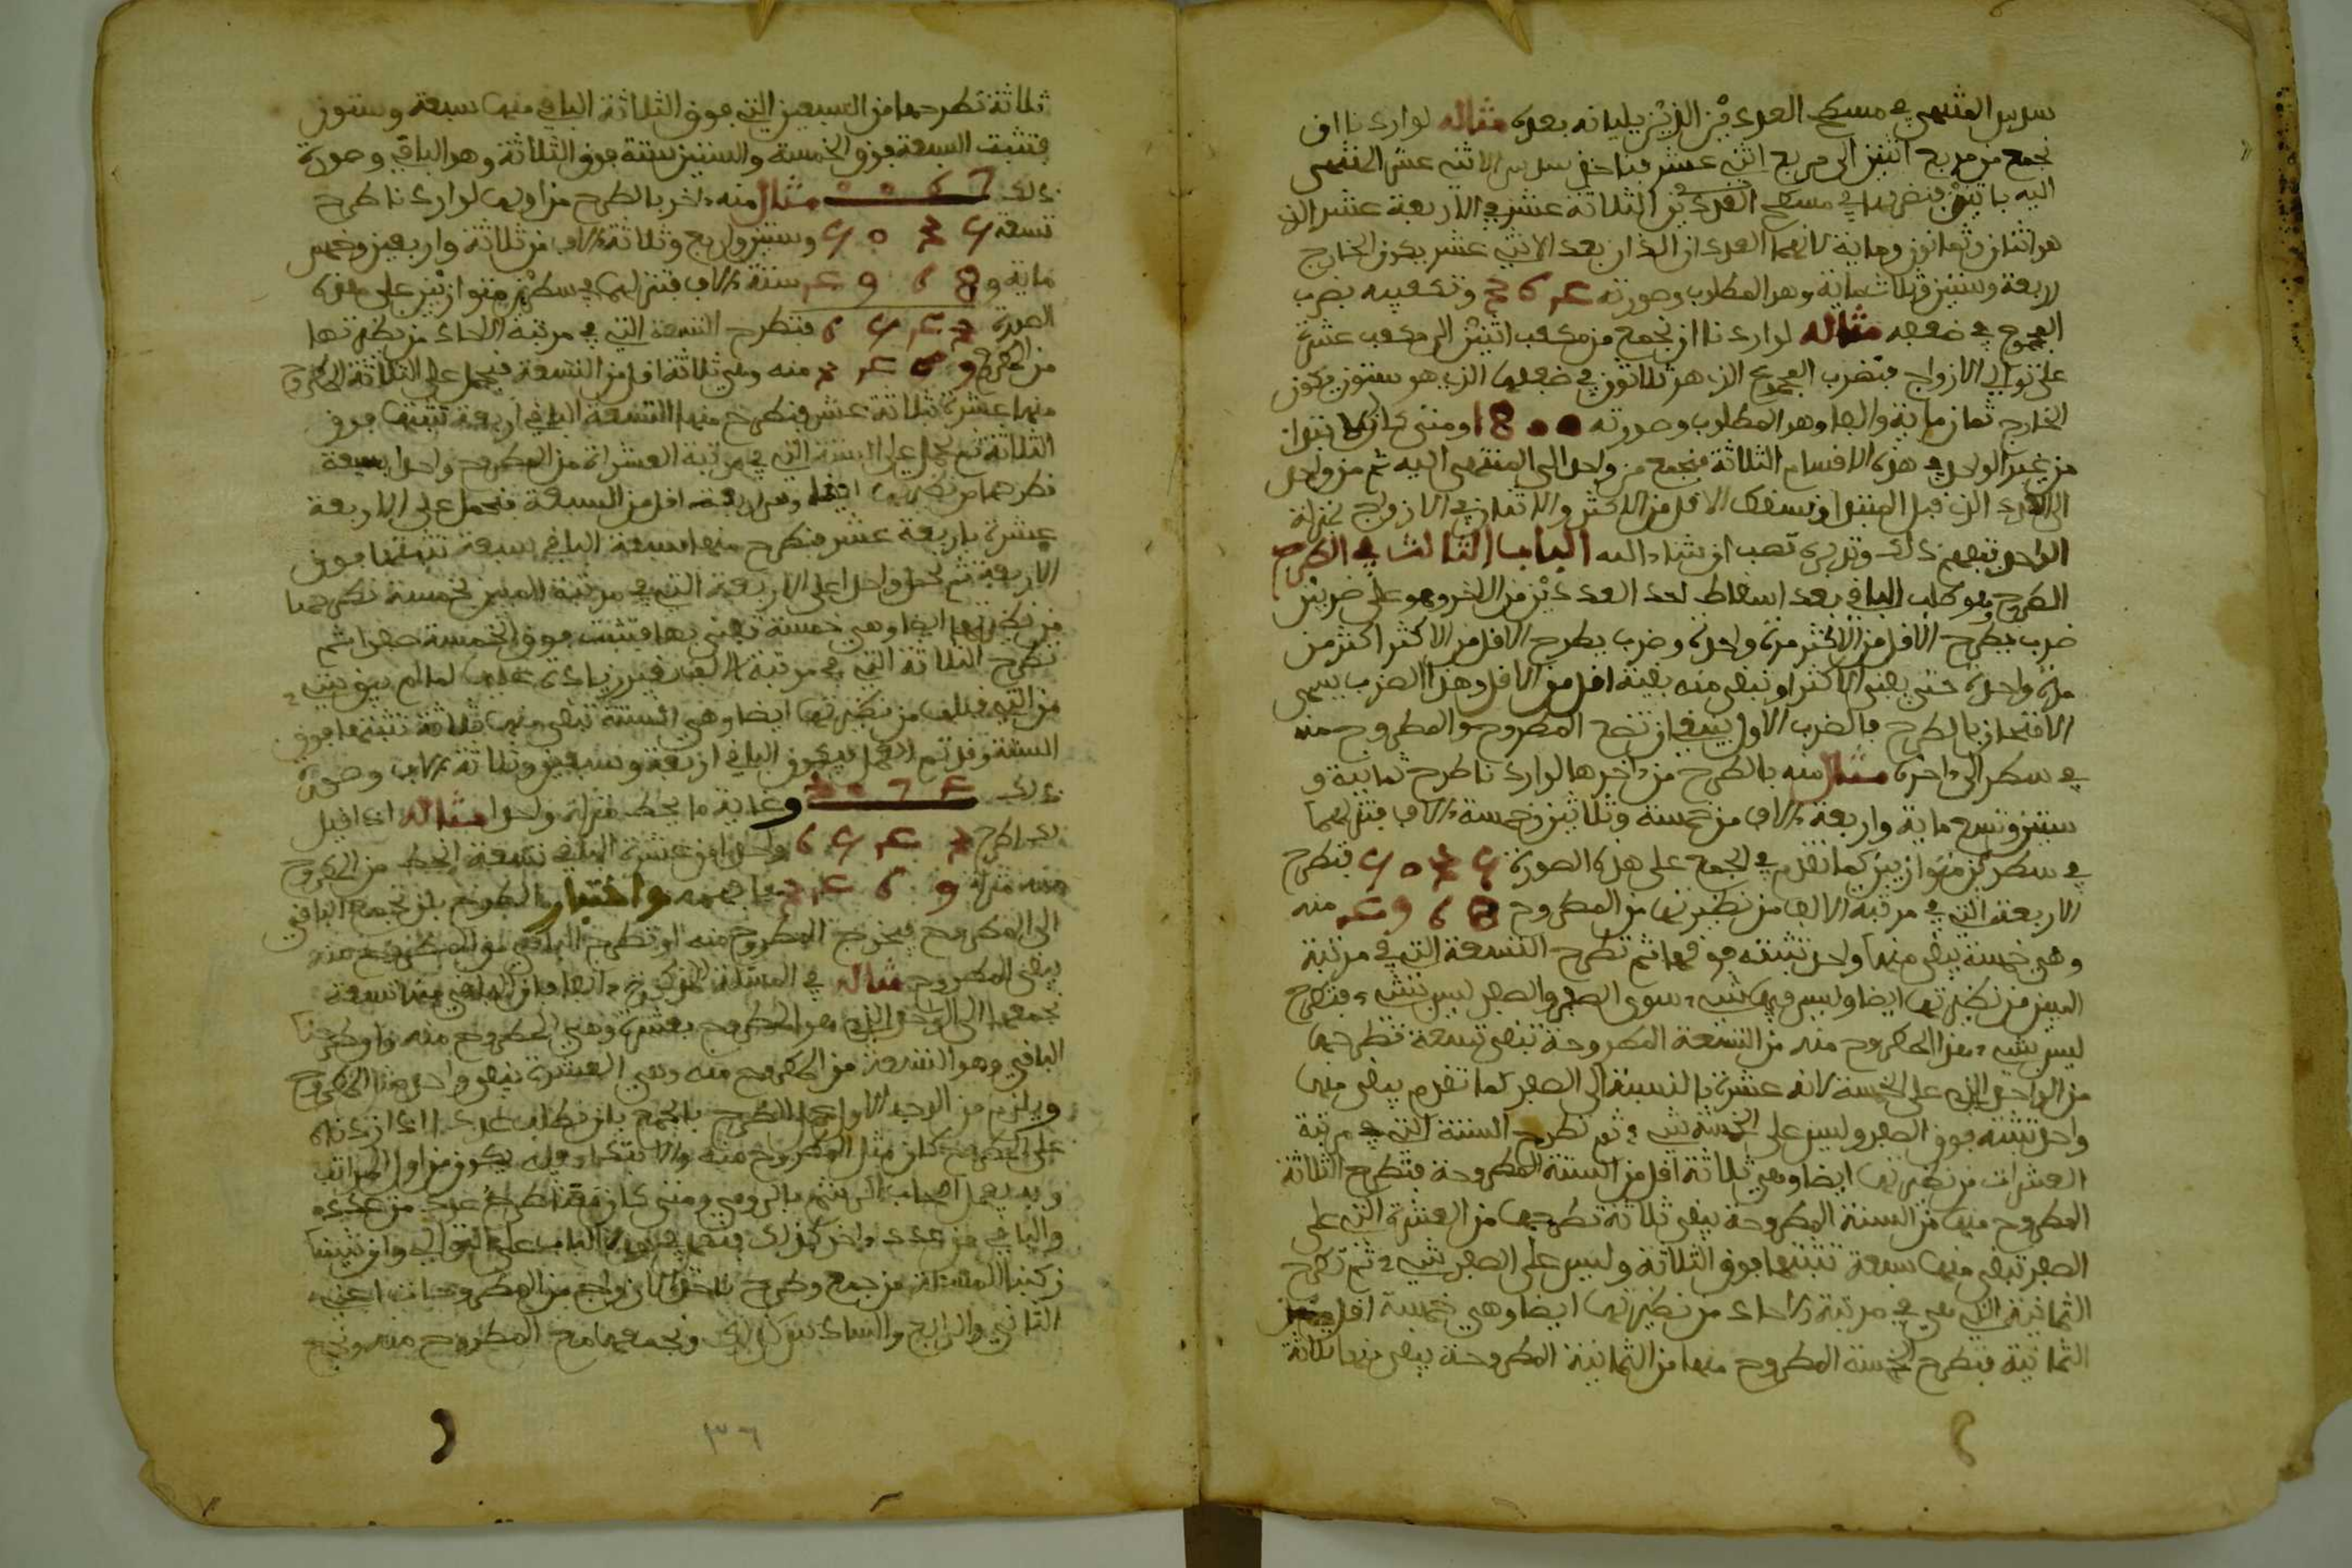 سدس المنتهى في مسطح العددين الذين يليانه بعده مثاله لو اردنا ان
نجمع من مربع اثنين الى مربع اثني عشر فناخذ سدس الاثني عشر المنتهى
اليه باثنين فنضربها في مسطح العددين الثلاثة عشر في الاربعة عشر الذي
هو اثنان وثمانون وماية لانهما العددان اللذان بعد الاثني عشر يكون الخارج
اربعة وستين وثلاثماية وهو المطلوب وصورته 364 وتكعيبه بضرب
المجموع في ضعفه مثاله لو اردنا ان نجمع من مكعب اثنين الى مكعب عشرة
على توالي الازواج فنضرب المجموع الذي هو ثلاثون في ضعفها الذي هو ستون يكون
الخارج ثمان ماية والفا وهو المطلوب وصورته 1800 ومتى كان
من غير الواحد في هذه الاقسام الثلاثة فنجمع من واحد الى المنتهى اليه ثم من واحد
الى العدد الذي قبل المبتدا ونسقط الاقل من الاكثر والاثنان في الازواج بمنزلة
الواحد تفهم ذلك وتدبره تصب ان شاء الله الباب الثالث في الطرح
الطرح وهو طلب الباقي بعد اسقاط احد العددين من الاخر وهو على ضربين
ضرب يطرح الاقل من الاكثر مرة واحدة وضرب يطرح الاقل من الاكثر اكثر من
مرة واحدة حتى يفنى الاكثر او تبقى منه بقية اقل من الاقل وهذا الضرب يسمى
الامتحان بالطرح فالضرب الاول ينبغي ان تضع المطروح والمطروح منه
في سطر الى اخره مثال منه بالطرح من اخرها لو اردنا طرح ثمانية و
ستين وتسع ماية واربعة الاف من خمسة وثلاثين وخمسة الاف فتنزلهما
في سطرين متوازيين كما تقدم في الجمع على هذه الصورة 5035 فتطرح
الاربعة التي في مرتبة الالاف من نظيرتها من المطروح 4968 منه
وهي خمسة يبقى منها واحد تثبته فوقها ثم تطرح التسعة التي في مرتبة
الميين من نظيرتها ايضا وليس فيها شيء سوى الصفر والصفر ليس بشيء فتطرح
ليس بشيء هذا المطروح منه من التسعة المطروحة تبقى تسعة تطرحها
من الواحد الذي على الخمسة لانه عشرة بالنسبة الى الصفر كما تقدم يبقى منها
واحد تثبته فوق الصفر وليس على الخمسة شيء ثم تطرح الستة التي في مرتبة
العشرات من نظيرتها ايضا وهي ثلاثة اقل من الستة المطروحة فتطرح الثلاثة
المطروح منها من الستة المطروحة يبقى ثلاثة تطرحها من العشرة التي على
الصفر تبقى منها سبعة تثبتها فوق الثلاثة وليس على الصفر شيء ثم تطرح
الثمانية التي هي في مرتبة الاحاد من نظيرتها ايضا وهي خمسة اقل من
الثمانية فتطرح الخمسة المطروح منها من الثمانية المطروحة يبقى منها ثلاثة
ثلاثة تطرحها من السبعين التي فوق الثلاثة الباقي منها سبعة وستون
فتثبت السبعة فوق الخمسة والستين ستة فوق الثلاثة وهو الباقي وصورة
ذلك 0067 مثال منه اخر بالطرح من اولها لو اردنا طرح
تسعة 5035 وستين واربع وثلاثة الاف من ثلاثة واربعين وخمس
ماية و 4968 ستة الاف فتنزلهما في سطرين متوازيين على هذه
الصورة 6543 فتطرح التسعة التي في مرتبة الاحاد من نظيرتها
من المطروح 3469 منه وهي ثلاثة اقل من التسعة فتحمل على الثلاثة المطروح
منها عشرة بثلاثة عشر فتطرح منها التسعة الباقي اربعة تثبتها فوق
الثلاثة ثم تحمل على الستة التي في مرتبة العشرات من المطروح واحدا بسبعة
تطرحها من نظيرتها ايضا وهي اربعة اقل من السبعة فتحمل على الاربعة
عشرة باربعة عشر فتطرح منها سبعة الباقي سبعة تثبتها فوق
الاربعة ثم تحمل واحدا على الاربعة التي في مرتبة الميين بخمسة تطرحها
من نظيرتها ايضا وهي خمسة تفنى بها فتثبت فوق الخمسة صفرا ثم
تطرح الثلاثة التي في مرتبة الالاف من غير زيادة عليها لما لم يبق شيء
من التي قبلها من نظيرتها ايضا وهي الستة تبقى منها ثلاثة تثبتها فوق
الستة وقد تم العمل فيكون الباقي اربعة وسبعين وثلاثة الاف وصورة
ذلك 3074 وغاية ما يحط منزلة واحدا مثاله اذا قيل
لك اطرح 6543 واحدا من عشرة الباقي تسعة انحط من المطروح
منه منزلة 3469 فافهمه واختبار الطرح بان تجمع الباقي
الى المطروح فيخرج المطروح منه او تطرح الباقي من المطروح منه
يبقى المطروح مثاله في المسئلة المذكورة انفا ان الباقي منها تسعة
نجمعها الى الواحد الذي هو المطروح بعشرة وهي المطروح منه ولو طرحنا
الباقي وهو التسعة من المطروح منه وهي العشرة يبقى واحد هذا المطروح
ويلزم من الوجه الاول عمل الطرح بالجمع بان تطلب عددا اذا زدناه
على المطروح كان مثل المطروح منه
وبه يعمل اصحاب الرشم بالرومي ومتى كان معنا طرح عدد من عدد
والباقي من عدد اخر كذلك
ركبنا المسئلة من جمع وطرح بان الازواج من المطروحات اعني
الثاني والرابع والسادس كذلك ونجمعها مع المطروح منه ونجمع
٣٦